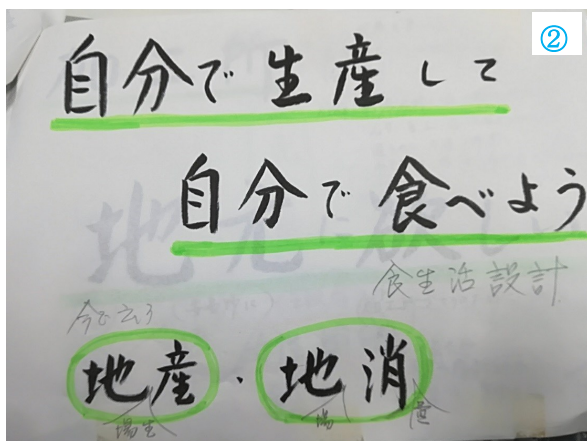 ②
自分で生産して
自分で食べよう
食生活設計
今で云う
地産・地消
場生 場 産